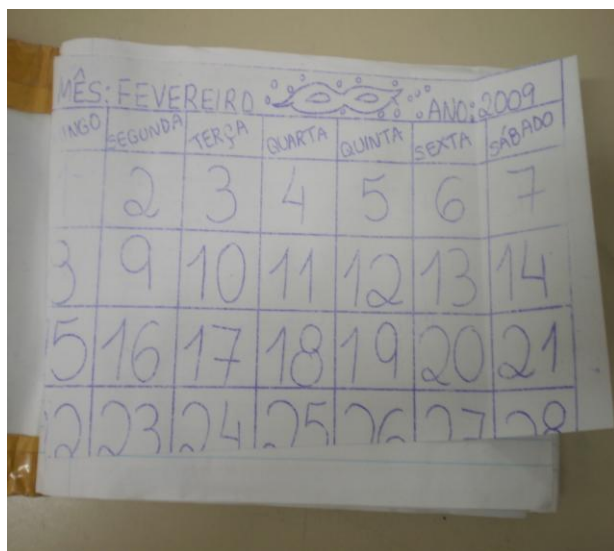 MÊS: FEVEREIRO ANO: 2009
INGO SEGUNDA TERÇA QUARTA QUINTA SEXTA SÁBADO
2 3 4 5 6 7
9 10 11 12 13 14
5 16 17 18 19 20 21
2 23 24 25 26 27 28